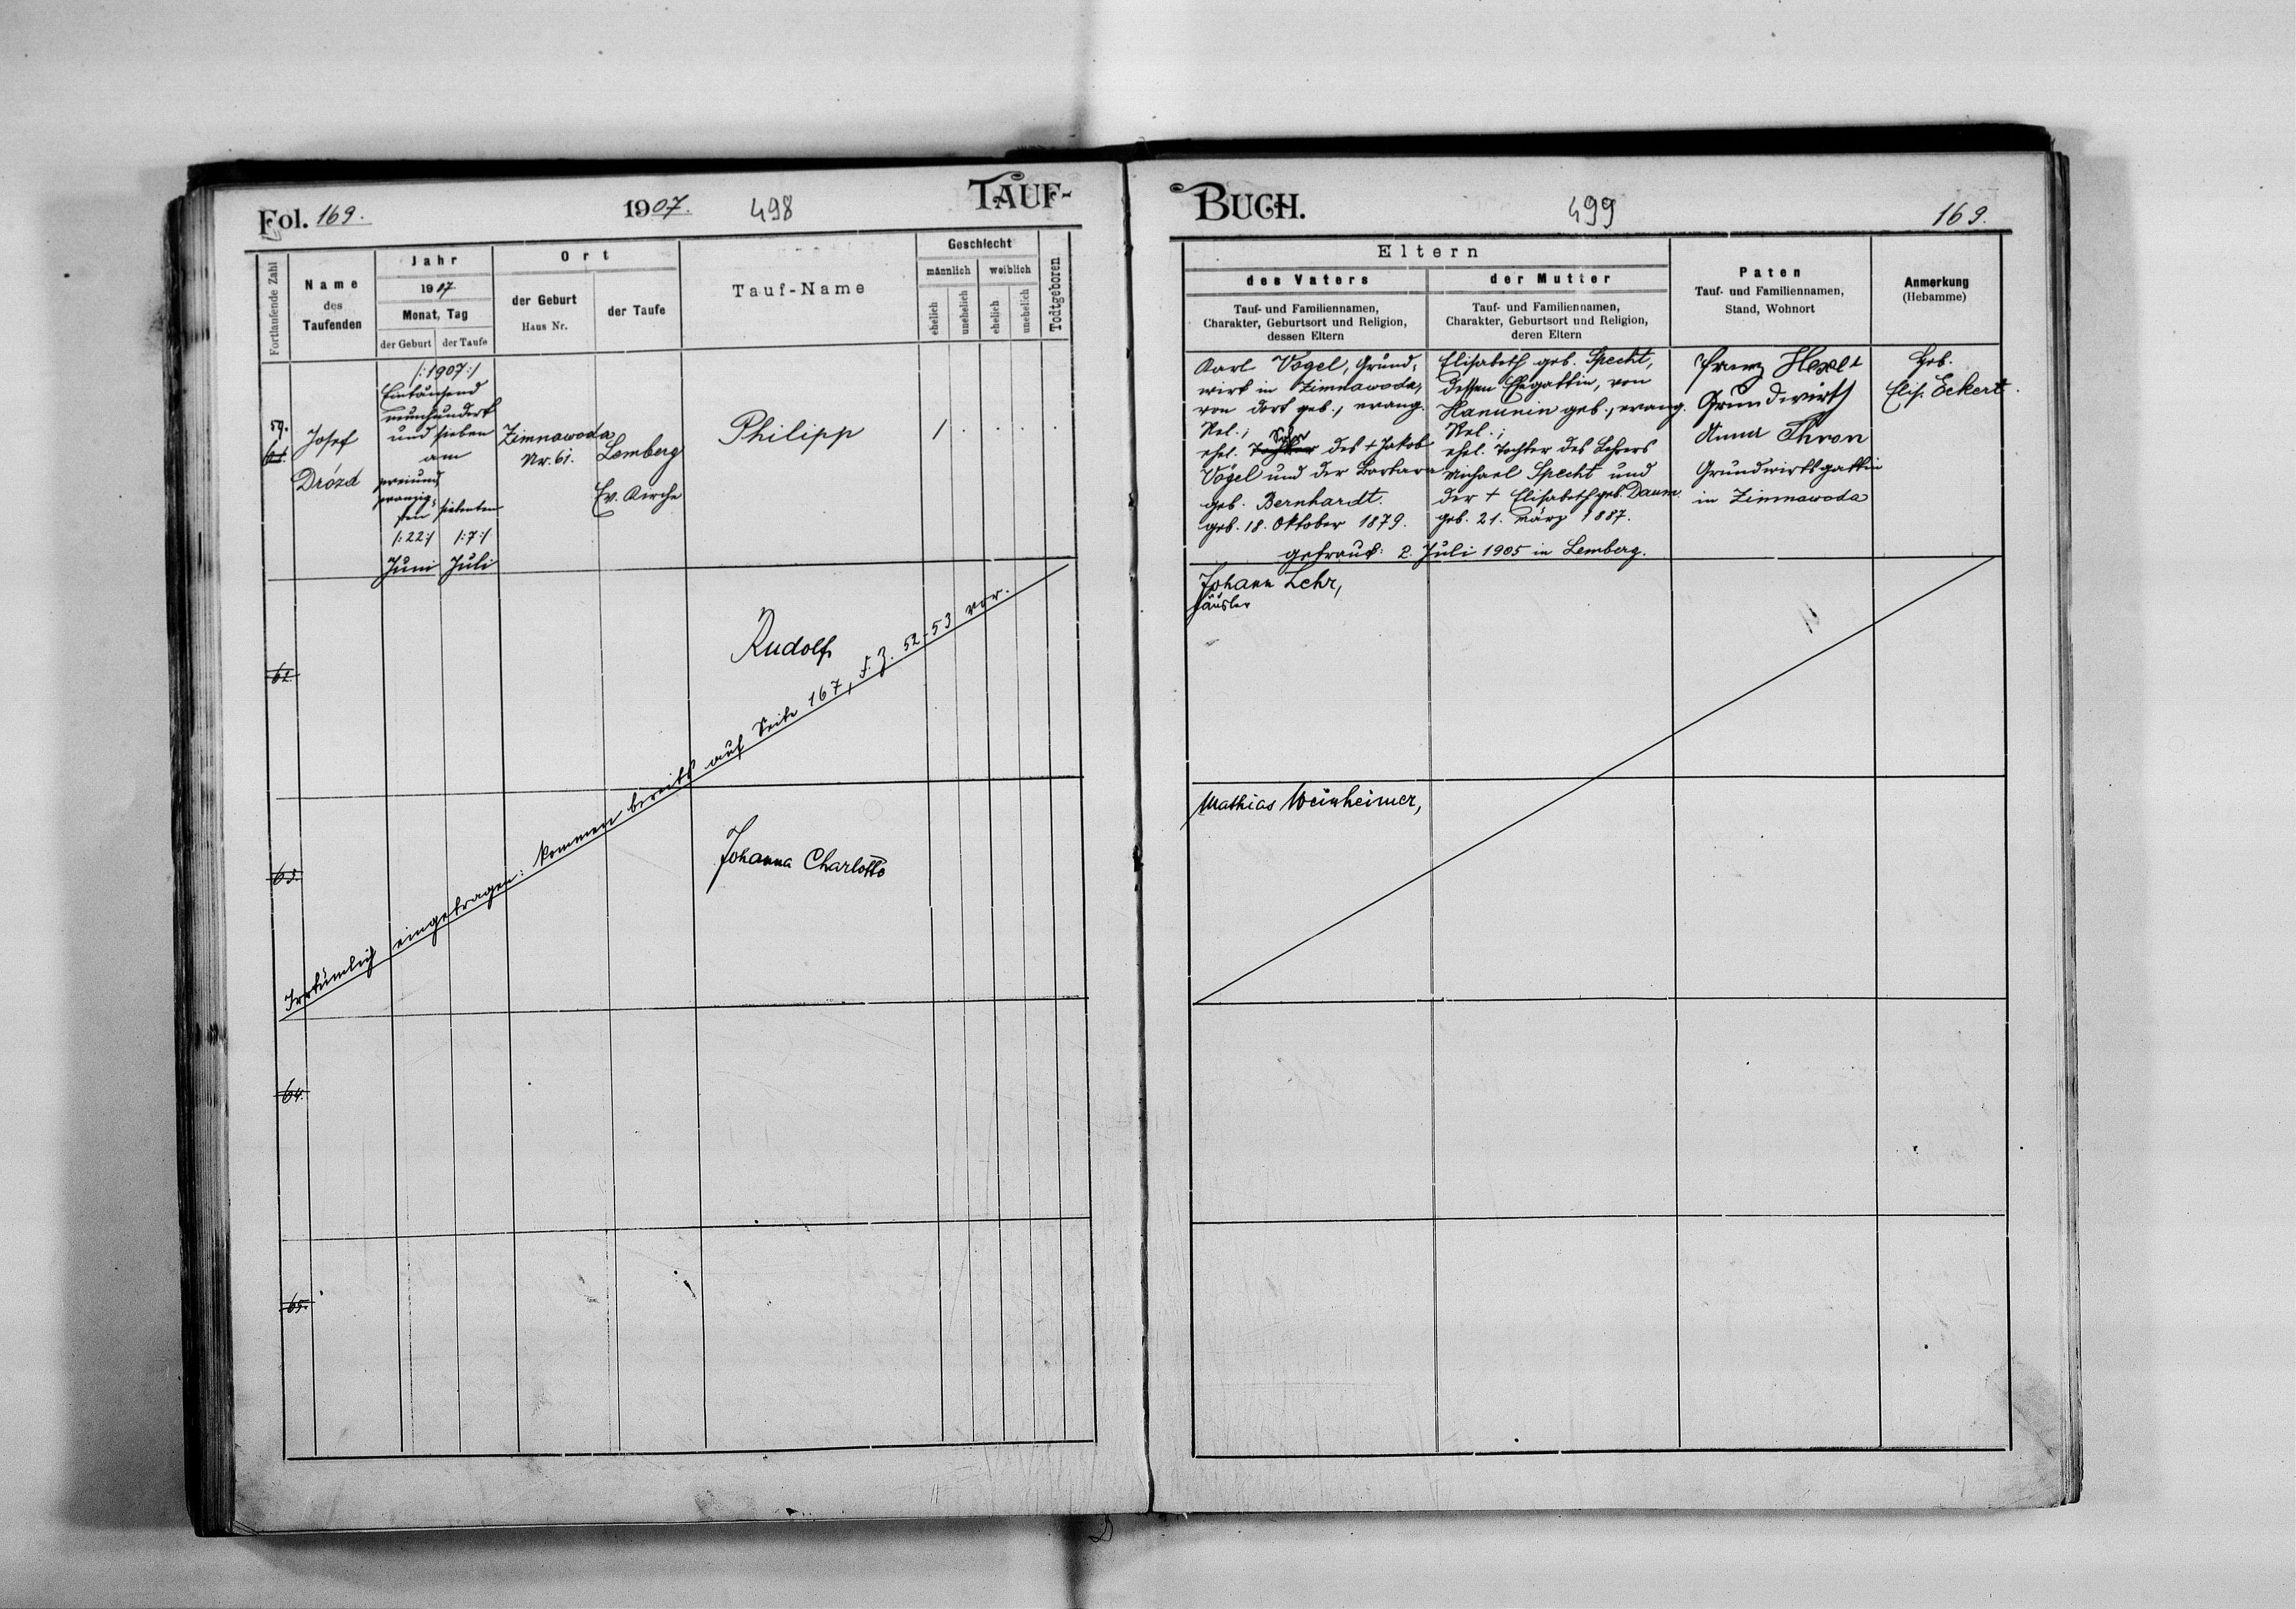 Fol. 169.
1907.
498
TAUF-
Fortlaufende Zahl
Name
des
Taufenden
Jahr
1907
Monat, Tag
der Geburt
der Taufe
Ort
der Geburt
Haus Nr.
der Taufe
Tauf-Name
Geschlecht
männlich
weiblich
ehelich
unehelich
ehelich
unehelich
Todtgeboren
59.
61.
Josef
Drózd
/:1907:/
Eintausend
neunhundert
und sieben
am
zweiund
zwanzig-
sten
/:22:/
Juni
siebenten
/:7:/
Juli
Zimnawoda
Nr. 61.
Lemberg
Ev. Kirche
Philipp
1 . . . .
62.
Rudolf
63.
Johanna Charlotte
Irrtümlich eingetragen: kommen bereits auf Seite 167, F. Z. 52-53 vor.
64.
65.
BUCH.
499
169.
Eltern
des Vaters
Tauf- und Familiennamen,
Charakter, Geburtsort und Religion,
dessen Eltern
der Mutter
Tauf- und Familiennamen,
Charakter, Geburtsort und Religion,
deren Eltern
Paten
Tauf- und Familiennamen,
Stand, Wohnort
Anmerkung
(Hebamme)
Karl Vogel, Grund-
wirt in Zimnawoda,
von dort geb., evang.
Rel.;
Sohn
ehel. Tochter des + Jakob
Vogel und der Barbara
geb. Bernhardt.
geb. 18. Oktober 1879.
Elisabeth geb. Specht,
dessen Ehegattin, von
Hanunin geb., evang.
Rel.;
ehel. Tochter des Lehrers
Michael Specht und
der + Elisabeth geb. Daum
geb. 21. März 1887.
getraut: 2. Juli 1905 in Lemberg.
Franz
Grundwirth
Anna Thron
Grundwirtsgattin
in Zimnawoda
Heb.
Elis. Eckert.
Johann Lehr,
Häusler
Mathias Weinheimer,